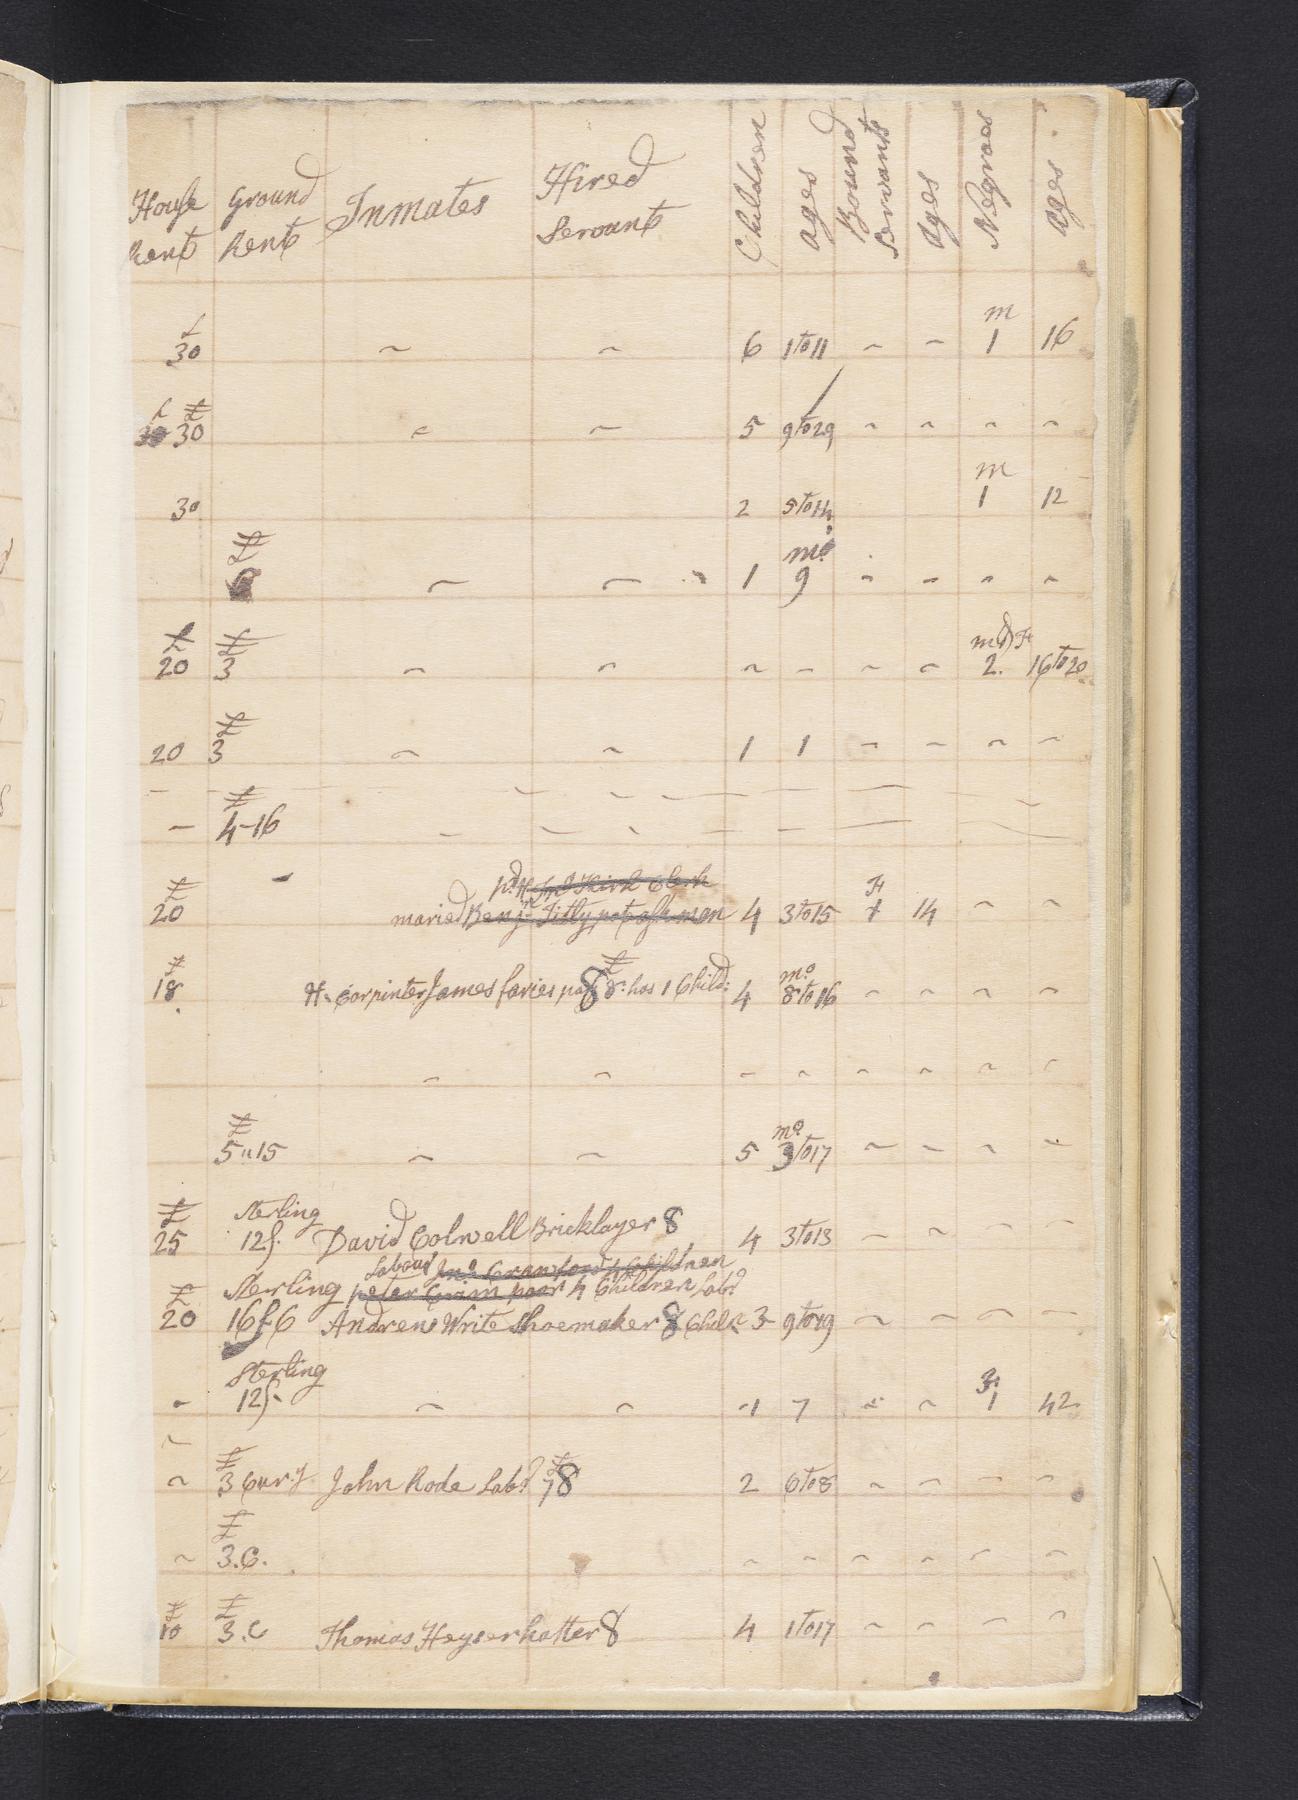 House Rent Ground Rent Inmates Hired Servants Children ages Bound Servants ages Negroes ages
£ m
30 ~ ~ 6 1 to 11 ~ ~ 1 16
£ £
30 30 ~ ~ 5 9 to 29 ~ ~ ~ ~
m
30 2 5 to 14 1 12
£ mo
~ ~ 1 9 ~ ~ ~ ~
£ £ m & F
20 3 ~ ~ ~ ~ ~ ~ 2. 16 to 20
£
20 3 ~ ~ 1 1 ~ ~ ~ ~
£
~ 4-16 ~ ~ ~ ~ ~ ~ ~ ~
Jno Kirk Clerk
£ F
20 maried Benjn 4 3 to 15 1 14 ~ ~
£ £ mo
18 H. Carpinter James faries pa 8 8: has 1 Child: 4 8 to 16 ~ ~ ~ ~
~ ~ ~ ~ ~ ~ ~ ~
£ mo
5"15 ~ ~ 5 3 to 17 ~ ~ ~ ~
£ Sterling
25 12s. David Colwell Bricklayer 8 4 3 to 13 ~ ~ ~ ~
Labour Jno Crawford 4 Children
£ Sterling peter Grim poor 4 Children Labr
20 16s6 Andrew Write Shoemaker 8 Child 3 9 to 19 ~ ~ ~ ~
Sterling F
~ 12s. ~ ~ 1 7 ~ ~ 1 42
£ £
~ 3 Cury John Rode Labr 7 8 2 6 to 8 ~ ~ ~ ~
£
~ 3.C. ~ ~ ~ ~ ~ ~
£ £
10 3.C Thomas Heyser hatter 8 4 1 to 17 ~ ~ ~ ~